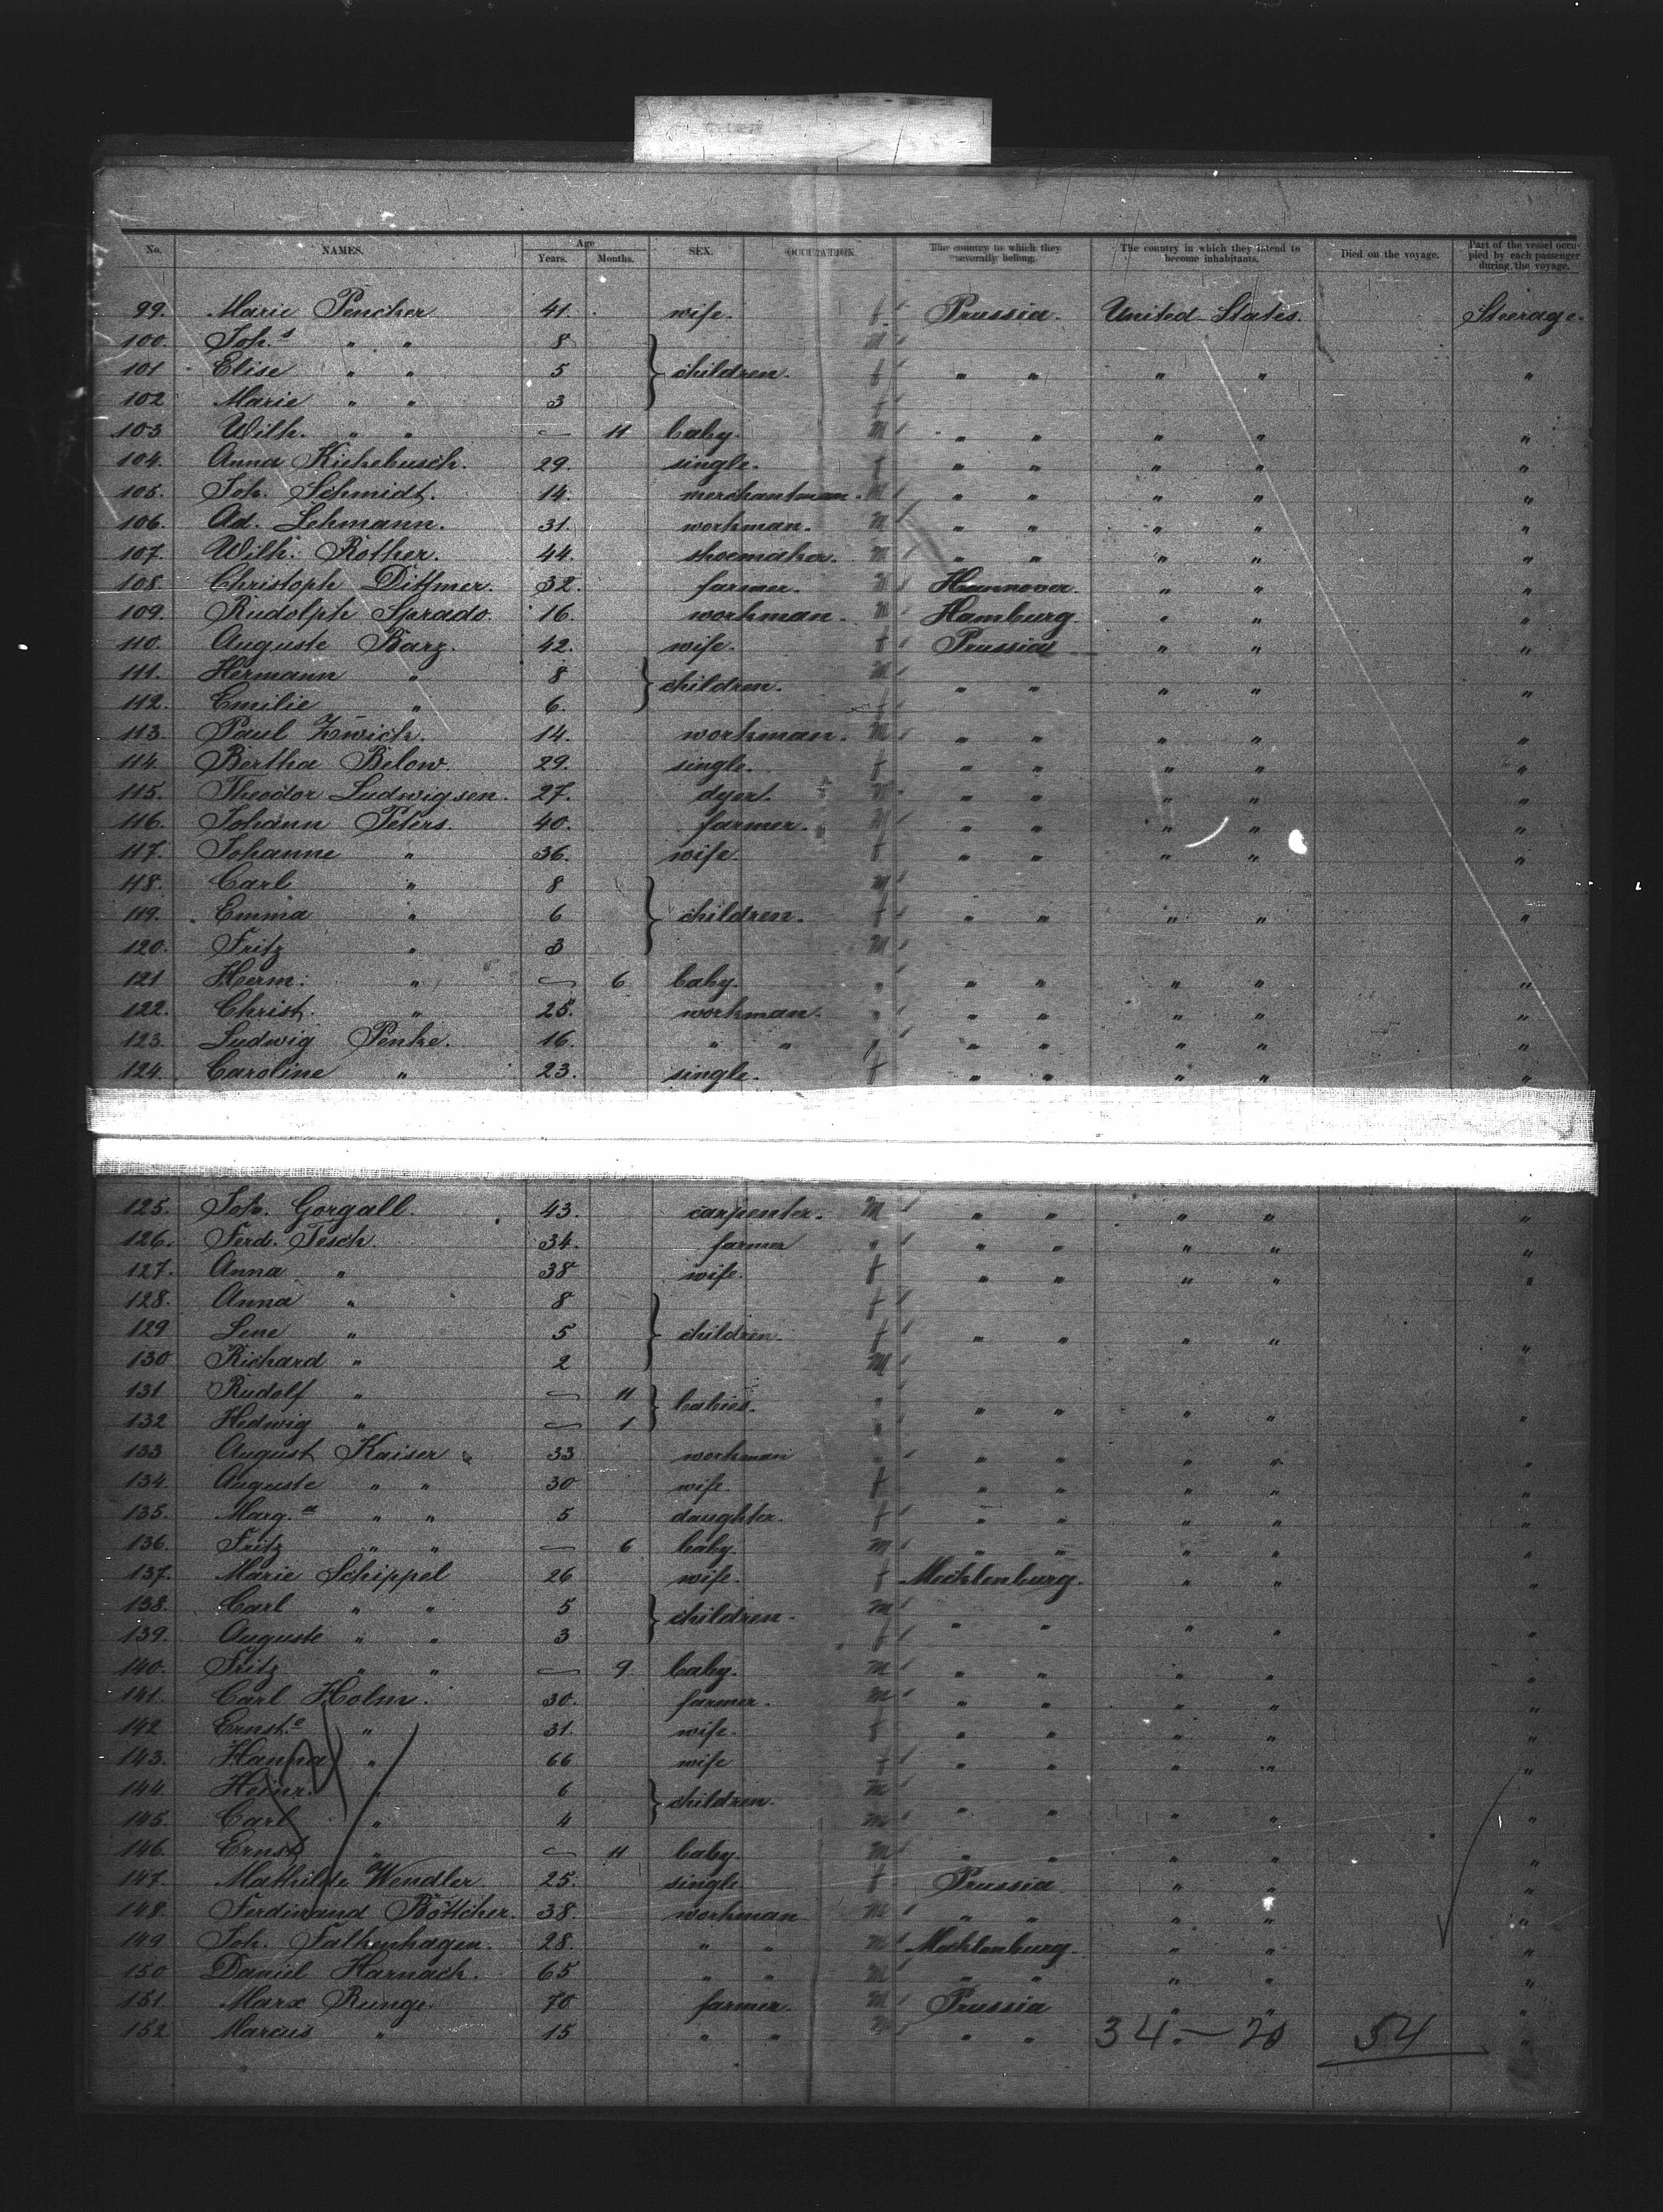 No. NAMES. Age Years. Months. SEX. OCCUPATION. The country to which they severally belong. The country in which they intend to become inhabitants. Died on the voyage. Part of the vessel occupied by each passenger during the voyage.
99. Marie Pencher 41. wife. f Prussia. United States. Steerage.
100. Joh.s " " 8 M
101 Elise " " 5 } children. f " " " " "
102 Marie " " 3 f
103 Wilh. " " — 11 baby. M " " " " "
104. Anna Kichebusch. 29. single. f " " " " "
105. Joh. Schmidt. 14. merchantman. M " " " " "
106. Ad. Lehmann. 31. workman. M " " " " "
107. Wilh. Rother. 44. shoemaker. M " " " " "
108. Christoph Dittmer. 32. farmer. M Hannover. " " "
109. Rudolph Sprado. 16. workman. M Hamburg. " " "
110. Auguste Barz. 42. wife. f Prussia " " "
111. Hermann " 8 } children. M " " " " "
112. Emilie " 6. f
113. Paul Zwich. 14. workman. M " " " " "
114. Bertha Below. 29. single. f " " " " "
115. Theodor Ludwigsen. 27. dyer. M " " " " "
116. Johann Peters. 40. farmer. M " " " " "
117. Johanne " 36. wife. f " " " " "
118. Carl " 8 M
119. Emma " 6 } children. f " " " " "
120. Fritz " 3 M
121 Herm: " — 6 baby. " " " " " "
122. Christ. " 25. workman. " " " " " "
123. Ludwig Penke. 16. " " " " " " " "
124. Caroline " 23. single. f " " " " "
125. Joh. Gorgall. 43. carpenter. M " " " " "
126. Ferd. Tesch. 34. farmer " " " " " "
127. Anna " 38 wife. f " " " " "
128. Anna " 8 f
129 Lene " 5 } children. f " " " " "
130 Richard " 2 M
131 Rudolf " — 11 } babies. " " " " " "
132 Hedwig " — 1 "
133 August Kaiser 33 workman " " " " " "
134. Auguste " " 30 wife. f " " " " "
135. Marg.a " " 5 daughter. f " " " " "
136. Fritz " " — 6 baby. M " " " " "
137. Marie Schippel 26 wife. f Mecklenburg. " " "
138. Carl " " 5 } children. M " " " " "
139. Auguste " " 3 f
140. Fritz " " — 9. baby. M " " " " "
141. Carl Holm. 30. farmer. M " " " " "
142 Ernst.e " 31. wife. f " " " " "
143. Hanna " 66 wife f " " " " "
144. Heinr. " 6 } children. M
145. Carl " 4 M " " " " "
146. Ernst " — 11 baby. M " " " " "
147. Mathilde Wendler. 25. single f Prussia " " "
148. Ferdinand Böttcher. 38. workman M " " " " "
149. Joh. Falkenhagen. 28. " " M Mecklenburg. " " "
150 Daniel Harnach. 65 " " M " " " " "
151 Marx Runge. 70 farmer. M Prussia " " "
152 Marcus " 15 " " M " " 34.—20 54 "